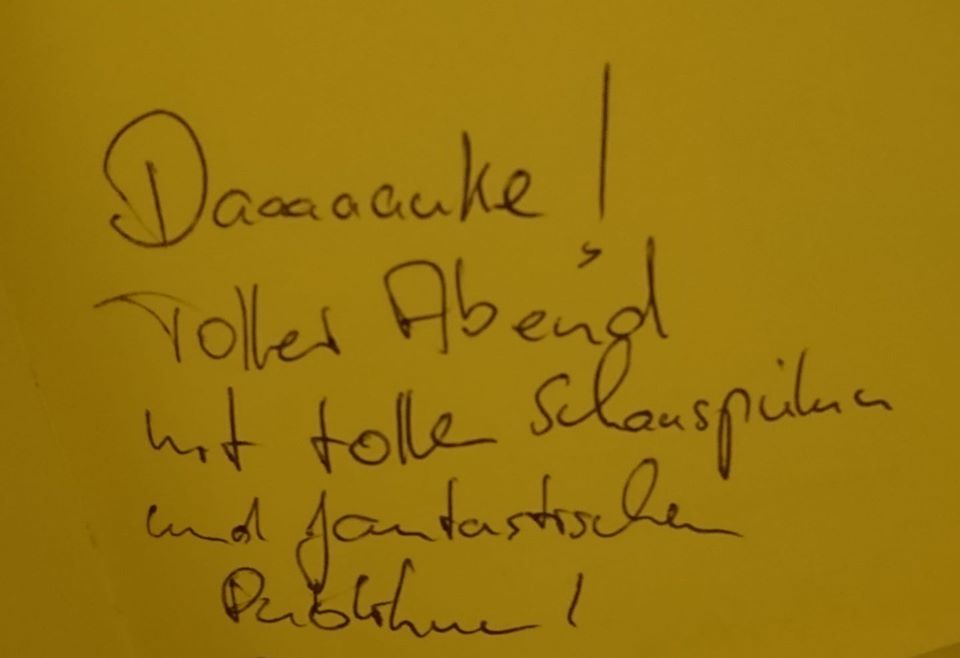 Daaaaanke!
Toller Abend
mit tollen Schauspielern
und fantastischen
Publikum!